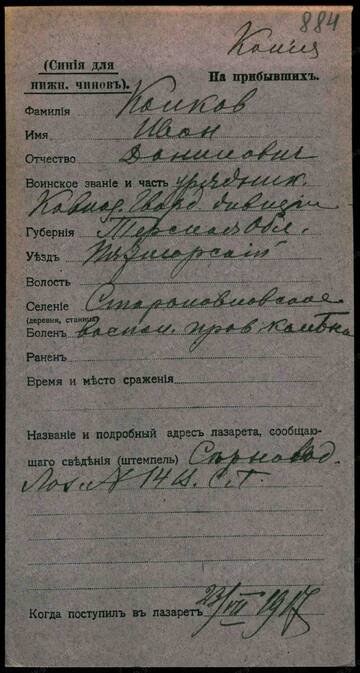 884
Копия
(Синія для
нижн. чиновъ).
На прибывшихъ.
Фамилія Колков
Имя Иван
Отчество Данилович
Воинское званіе и часть урядник.
Кавказ. Гвард. дивизіи
Губернія Терская Обл.
Уѣздъ Пятигорскій
Волость
Селеніе Старопавловское
(деревня, станица)
Боленъ воспал. прав колѣна
Раненъ
Время и мѣсто сраженія
Названіе и подробный адресъ лазарета, сообщаю-
щаго свѣдѣнія (штемпель) Сѣрновод.
Лаз. N 14 С. Г.
Когда поступилъ въ лазаретъ 23/VII 1917